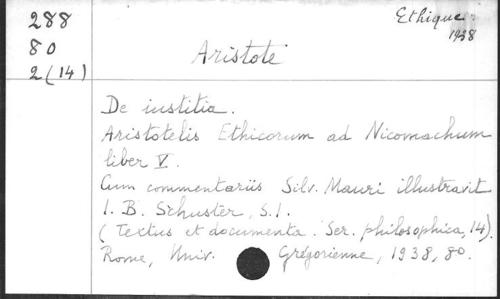 288
80
2 (14)
Ethique
1938
Aristote
De iustitia.
Aristotelis Ethicorum ad Nicomachum
liber V.
Cum commentariis Silv. Mauri illustravit
I. B. Schuster, S.I.
(Textus et documenta. Ser. philosophica, 14).
Rome, Univ. Grégorienne, 1938, 80.